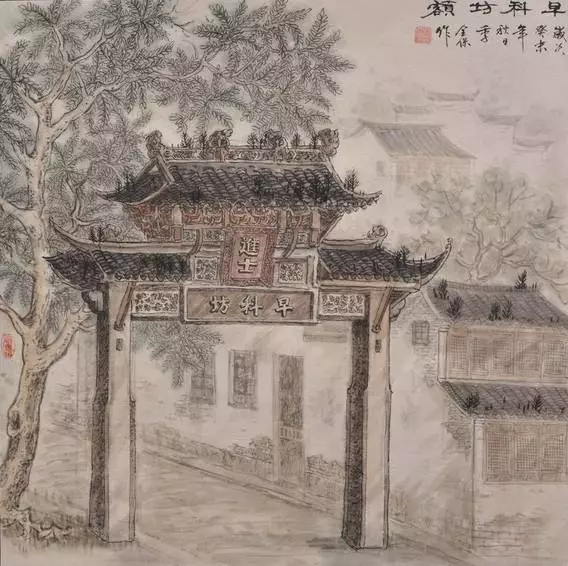 早科坊額
歲次
癸未
年
季
金保
作
進士
早科坊